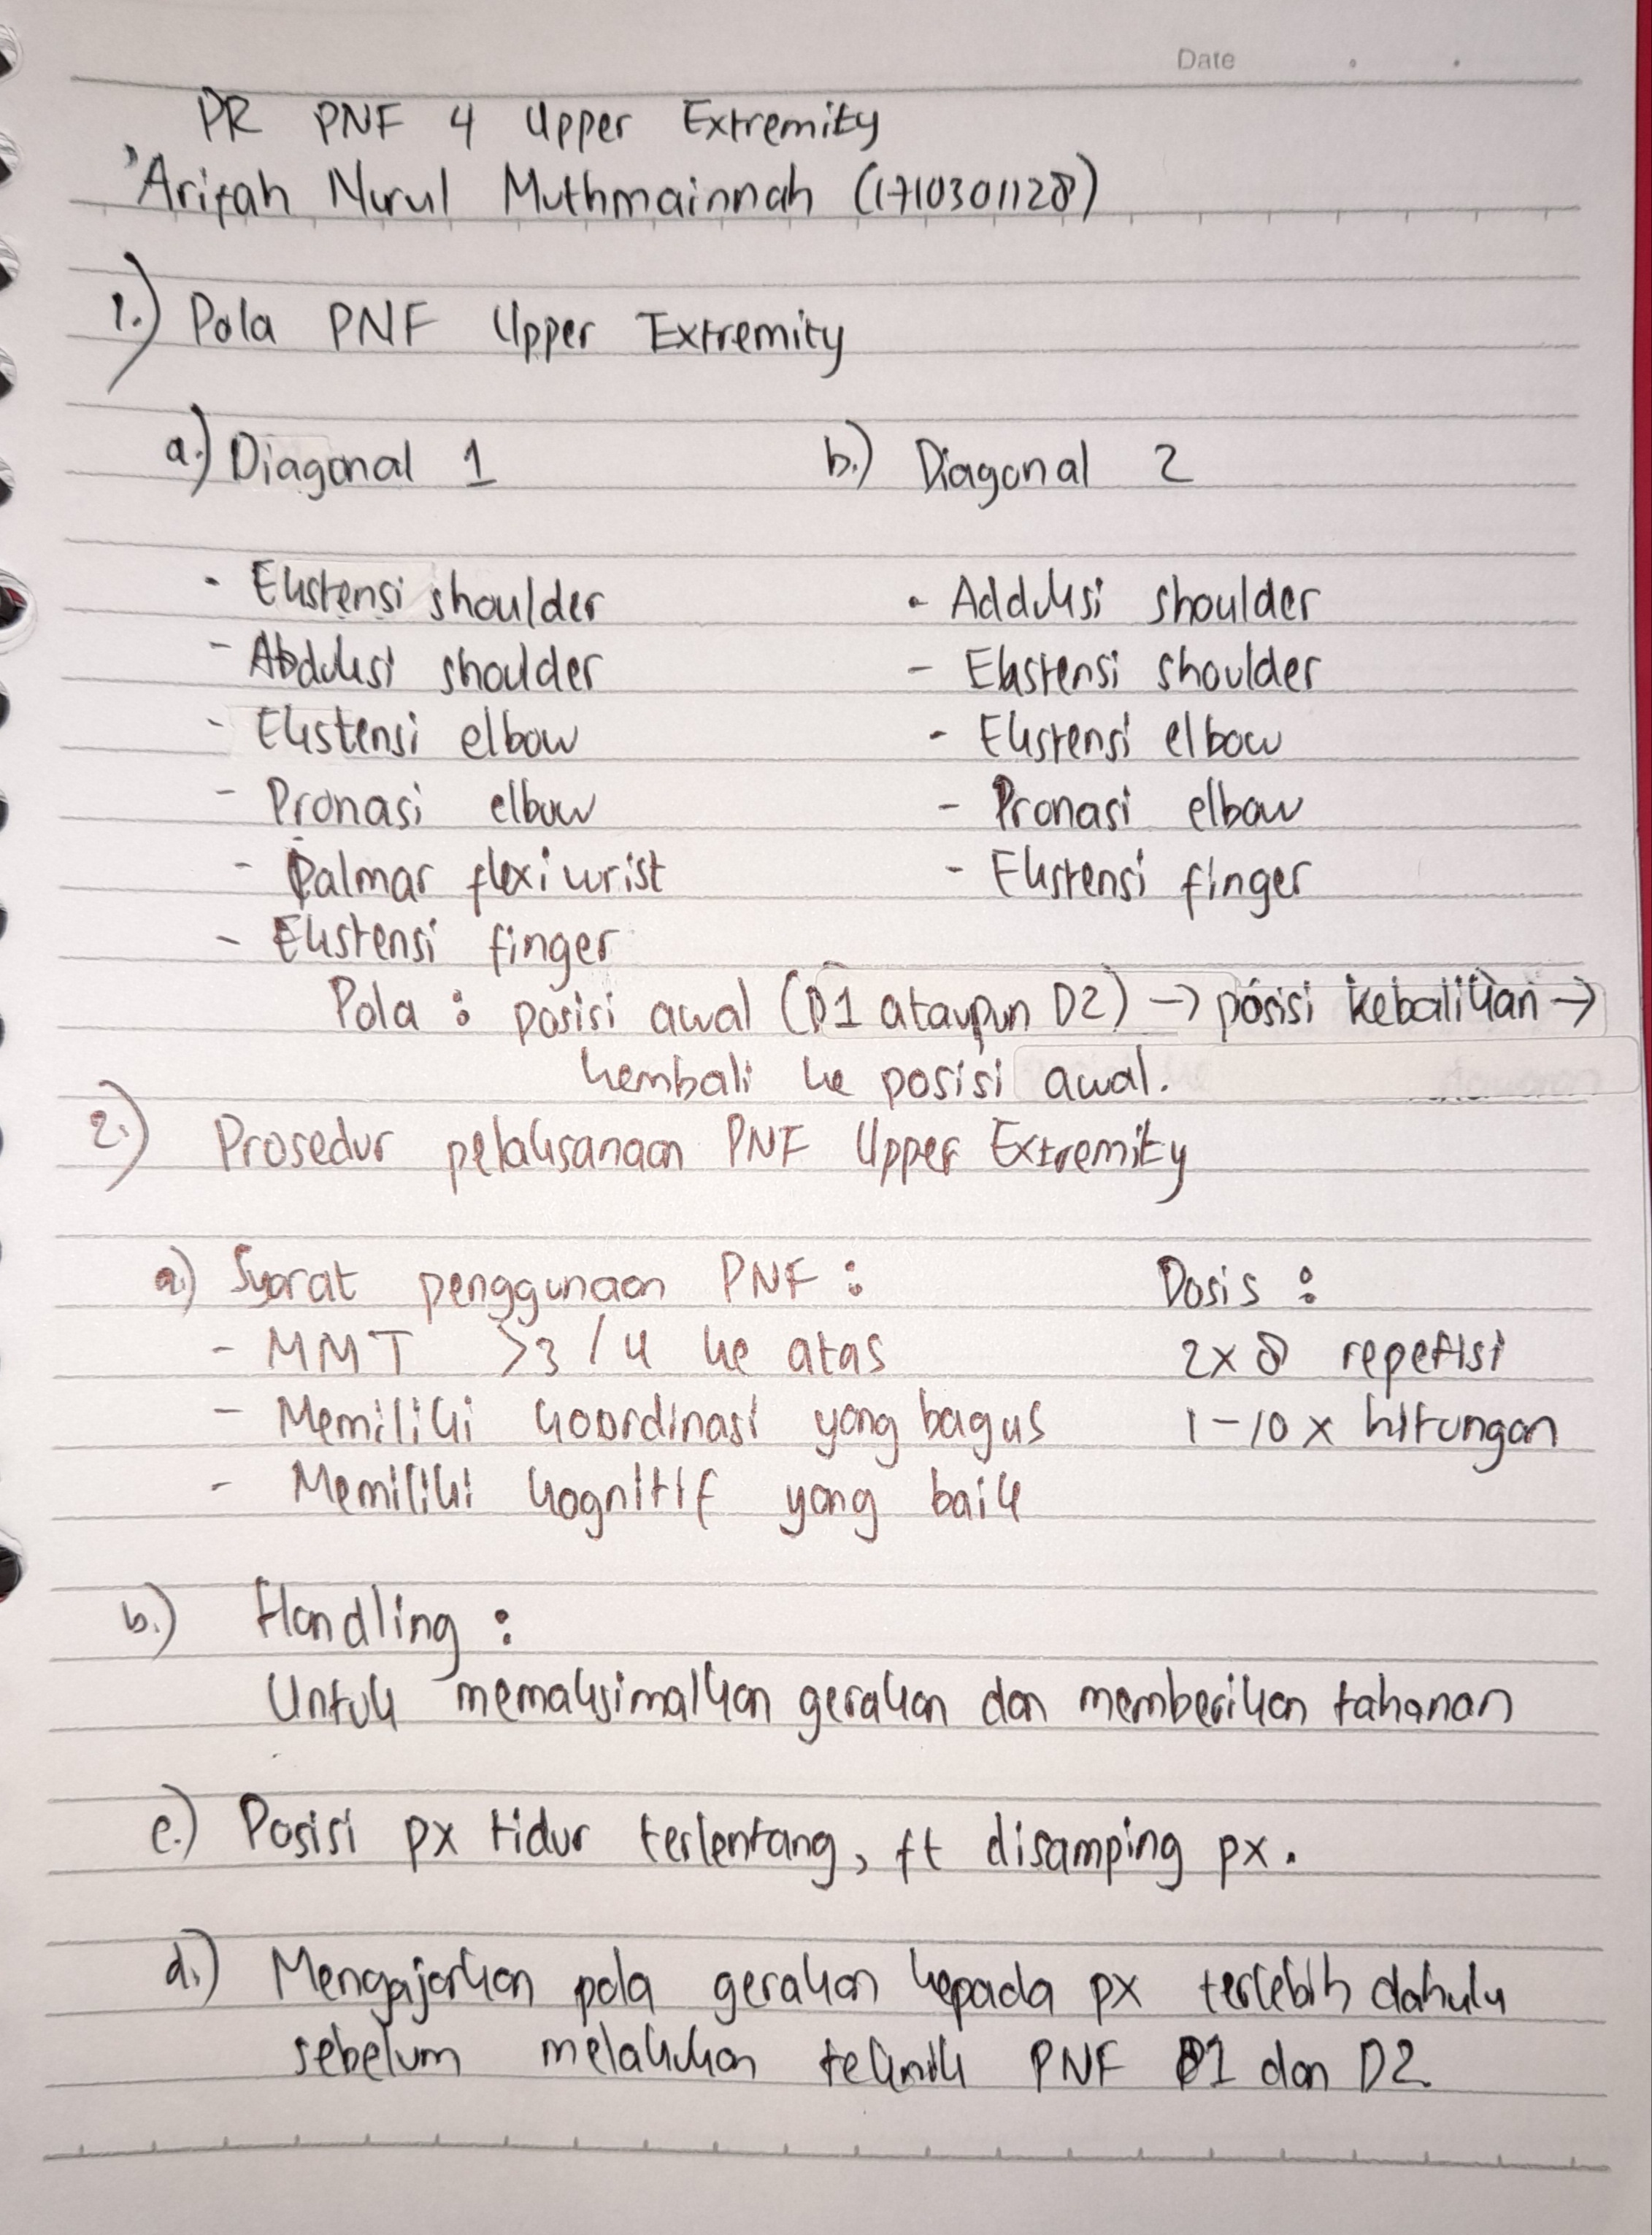 Date
PR PNF 4 Upper Extremity
'Arifah Nurul Muthmainnah (1710301128)
1.) Pola PNF Upper Extremity
a.) Diagonal 1 b.) Diagonal 2
- Ekstensi shoulder - Adduksi shoulder
- Abduksi shoulder - Ekstensi shoulder
- Ekstensi elbow - Ekstensi elbow
- Pronasi elbow - Pronasi elbow
- Palmar flexi wrist - Ekstensi finger
- Ekstensi finger
Pola : posisi awal (D1 ataupun D2) → posisi kebalikan →
kembali ke posisi awal.
2.) Prosedur pelaksanaan PNF Upper Extremity
a.) Syarat penggunaan PNF : Dosis :
- MMT >3 / 4 ke atas 2x8 repetisi
- Memiliki koordinasi yang bagus 1-10 x hitungan
- Memiliki kognitif yang baik
b.) Handling :
Untuk memaksimalkan gerakan dan memberikan tahanan
c.) Posisi px tidur terlentang, ft disamping px.
d.) Mengajarkan pola gerakan kepada px terlebih dahulu
sebelum melakukan teknik PNF D1 dan D2.